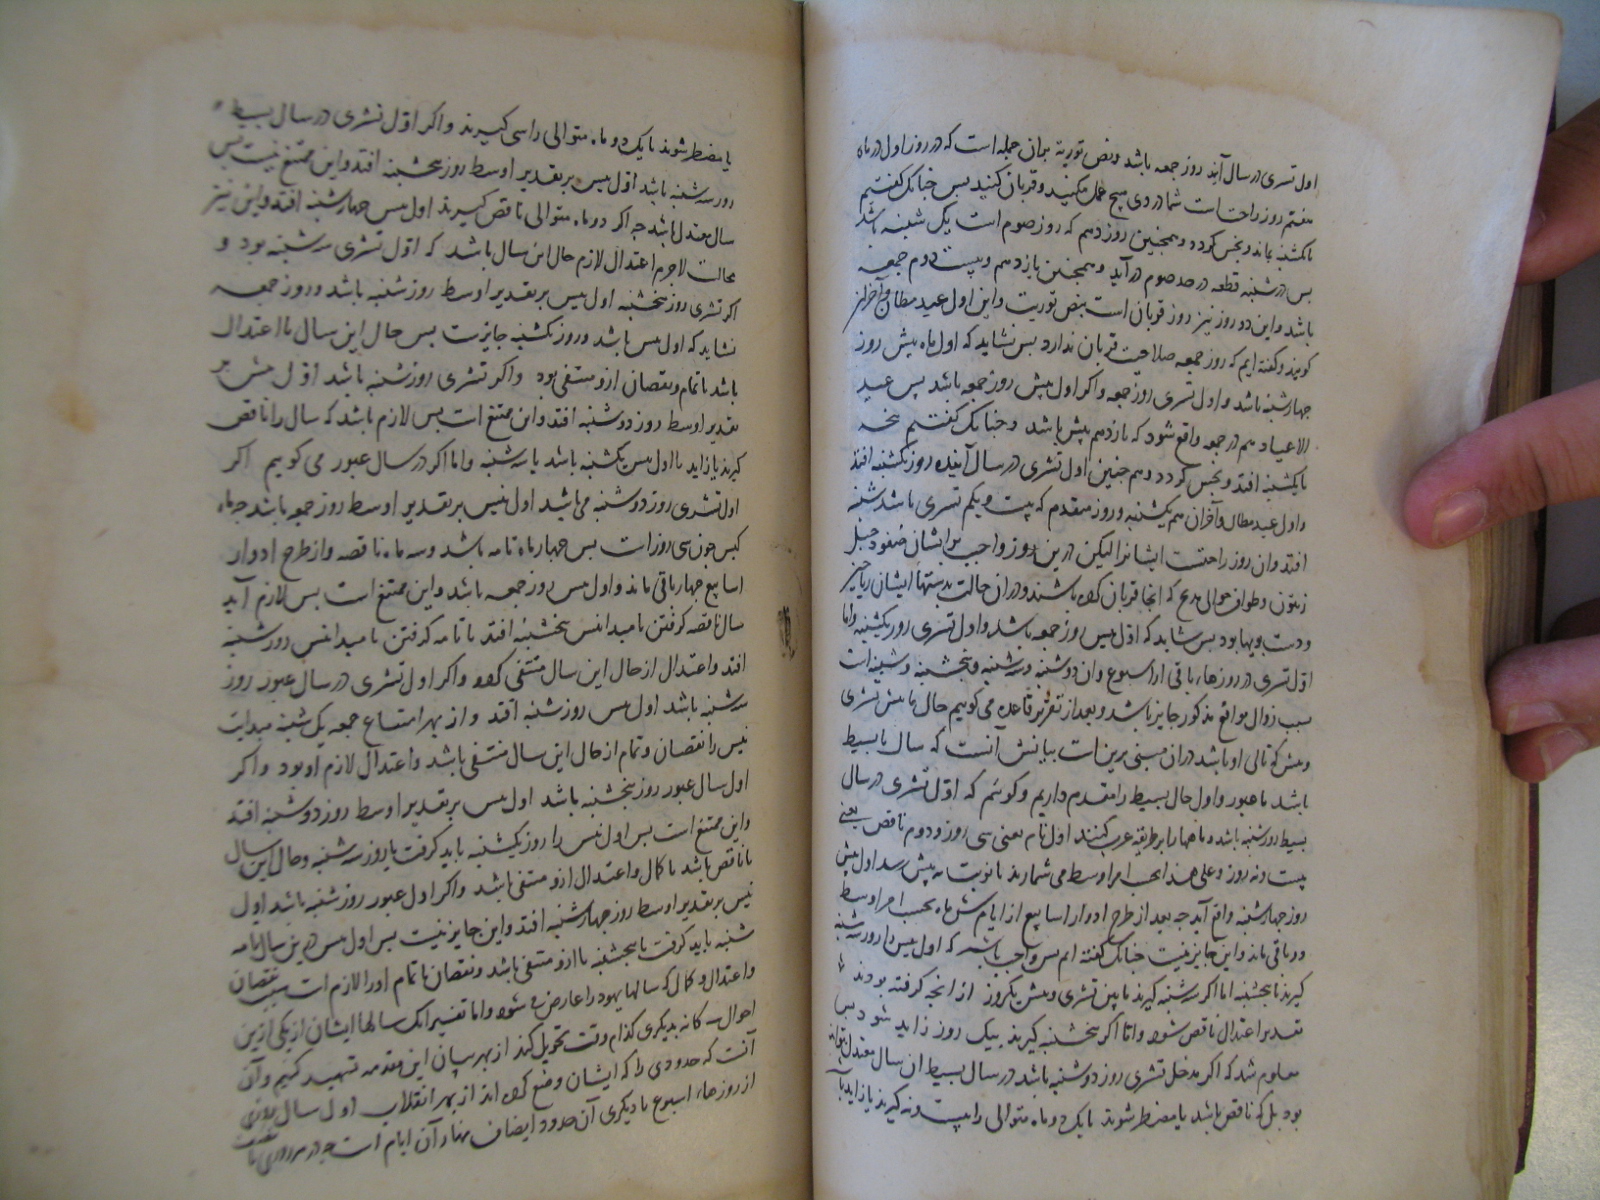 اول تسری در سال آید روز جمعه باشد ونص توریة بران جمله است که در روز اول در ماه
هفتم روز راحت است شما در وی هیچ عمل مکنید و قربان کنید بس چنانک کفتیم
تا یکشنبه بماند ونجس کردد وهمچنین روز دهم که روز صوم است یک شنبه باشد
بس در شنبه قطعه در حد صوم در آید وهمجنین بازدهم وبیست دوم جمعه
باشد واین دو روز نیز روز قربان است بنص توریت واین اول عید مطال وآخر از
کویند وکفته ایم که روز جمعه صلاحیت قربان ندارد بس نشاید که اول ماه بیش روز
جهارشنبه باشد و اول تسری روز جمعه واکر اول بیش روز جمعه باشد پس عید
الاعیاد هم در جمعه واقع شود که بازدهم بیش باشد وجنانک کفتیم
تا یکشنبه افتد ونجس کردد وهم جنین اول تشری در سال آینده روز یکشنبه افتد
واول عید مطال وآخران هم یکشنبه وروز متقدم که بیست ویکم تسری باشد شنبه
افتد وان روز راحتست ایشانرا لیکن درین روز واجب بر ایشان صعود جبل
زیتون وطواف حوالی مذبح که انجا قربان کرده باشند ودران حالت بدستها ایشان
بود بس نشاید که اول بیس روز جمعه باشد واول تسری روز یکشنبه واما
اول تسری در روزهاء باقی از اسبوع وان دوشنبه وسه شنبه وبنجشنبه وشنبه است
سبب زوال موانع مذکور جایز باشد وبعد از تقریر قاعده می کوییم حال ما بیش تشری
وبیش که تالی او باشد دران مبنی برین است بیانش آنست که سال یا بسیط
باشد یا عبور واول حال بسیط را مقدم داریم وکوئیم که اول تشری در سال
بسیط روز شنبه باشد وماهها را بر طریقه عرب کنند اول تام یعنی سی روز ودوم ناقص یعنی
بیست ونه روز وعلی هذا بحسب امر اوسط می شمارند تا نوبت به بیش رسد اول بیش
روز جهارشنبه واقع آید جه بعد از طرح ادوار اسابیع از ایام شش ماه بحسب امر اوسط
دو باقی ماند واین جایز نیست جنانک کفته ایم بس واجب باشد که اول بیس را روز سه شنبه
کیرند یا بنجشنبه اما اکر سه شنبه کیرند ما بین تشری وبیش یکروز از انجه کرفته بودند
تقدیر اعتدال ناقص شود واما اکر بنجشنبه کیرند بیک روز زاید شود بس
معلوم شد که اکر مدخل تشری روز دوشنبه باشد در سال بسیط ان سال معتدل نتواند
بود بل که ناقص باشد یا مضطر شوند تا یک دو ماه متوالی را بیست ونه کیرند یا زاید
یا مضطر شوند تا یک دو ماه متوالی را سی کیرند واکر اول تشری در سال بسیط
روز سه شنبه باشد اول بیس بر تقدیر اوسط روز بنجشنبه افتد واین ممتنع نیست بس
سال معتدل باشد جه اکر دو ماه متوالی ناقص کیرند اول بیس جهارشنبه افتد واین نیز
محالست لاجرم اعتدال لازم حال این سال باشد که اول تشری سه شنبه بود و
اکر تشری روز بنجشنبه اول بیس بر تقدیر اوسط روز شنبه باشد وروز جمعه
نشاید که اول بیس باشد وروز یکشنبه جایزست بس حال این سال با اعتدال
باشد یا تمام ونقصان ازو منتفی بود واکر تشری روز شنبه باشد اول بیش بر
تقدیر اوسط روز دوشنبه افتد واین ممتنع است بس لازم باشد که سال را ناقص
کیرند یا زاید تا اول بیس یکشنبه باشد یا سه شنبه واما اکر در سال عبور می کوییم اکر
اول تشری روز دوشنبه می باشد اول نیس بر تقدیر اوسط روز جمعه باشد جه ماه
کبس جون سی روز است بس جهار ماه تامه باشد وسه ماه ناقصه واز طرح ادوار
اسابیع جهار باقی ماند واول بیس روز جمعه باشد واین ممتنع است بس لازم آید
سال ناقصه کرفتن تا مبدا نیس بنجشنبه افتد یا تامه کرفتن تا مبدا نیس روز شنبه
افتد واعتدال از حال این سال منتفی کردد واکر اول تشری در سال عبور روز
سه شنبه باشد اول بیس روز شنبه افتد و از بهر امتناع جمعه یک شنبه مبدایت
نیس را نقصان وتمام از حال این سال منتفی باشد واعتدال لازم او بود واکر
اول سال عبور روز بنجشنبه باشد اول بیس بر تقدیر اوسط روز دوشنبه افتد
واین ممتنع است بس اول نیس را روز یکشنبه باید کرفت یا روز سه شنبه وحال این سال
یا ناقص باشد یا کمال واعتدال ازو منتفی باشد واکر اول عبور روز شنبه باشد اول
نیس بر تقدیر اوسط روز جهارشنبه افتد واین جایز نیست بس اول بیس درین سال یا سه
شنبه باید کرفت یا بنجشنبه تا ازو منتفی باشد ونقصان یا تمام اورا لازم است سبب نقصان
واعتدال وکمال که سالها یهود را عارض می شود واما تفسیر انک سالها ایشان از یکی ازین
احوال سه کانه بدیکری کدام وقت تحویل کند از بهر بیان این مقدمه تمهید کنیم وآن
آنست که حدودی را که ایشان وضع کرده اند از بهر انقلاب اول سال
از روزهاء اسبوع تا دیکری آن حدود ایضاف بهار آن ایام است